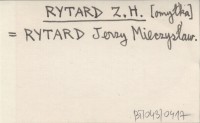 RYTARD Z.H. [omyłka]
= RYTARD Jerzy Mieczysław.